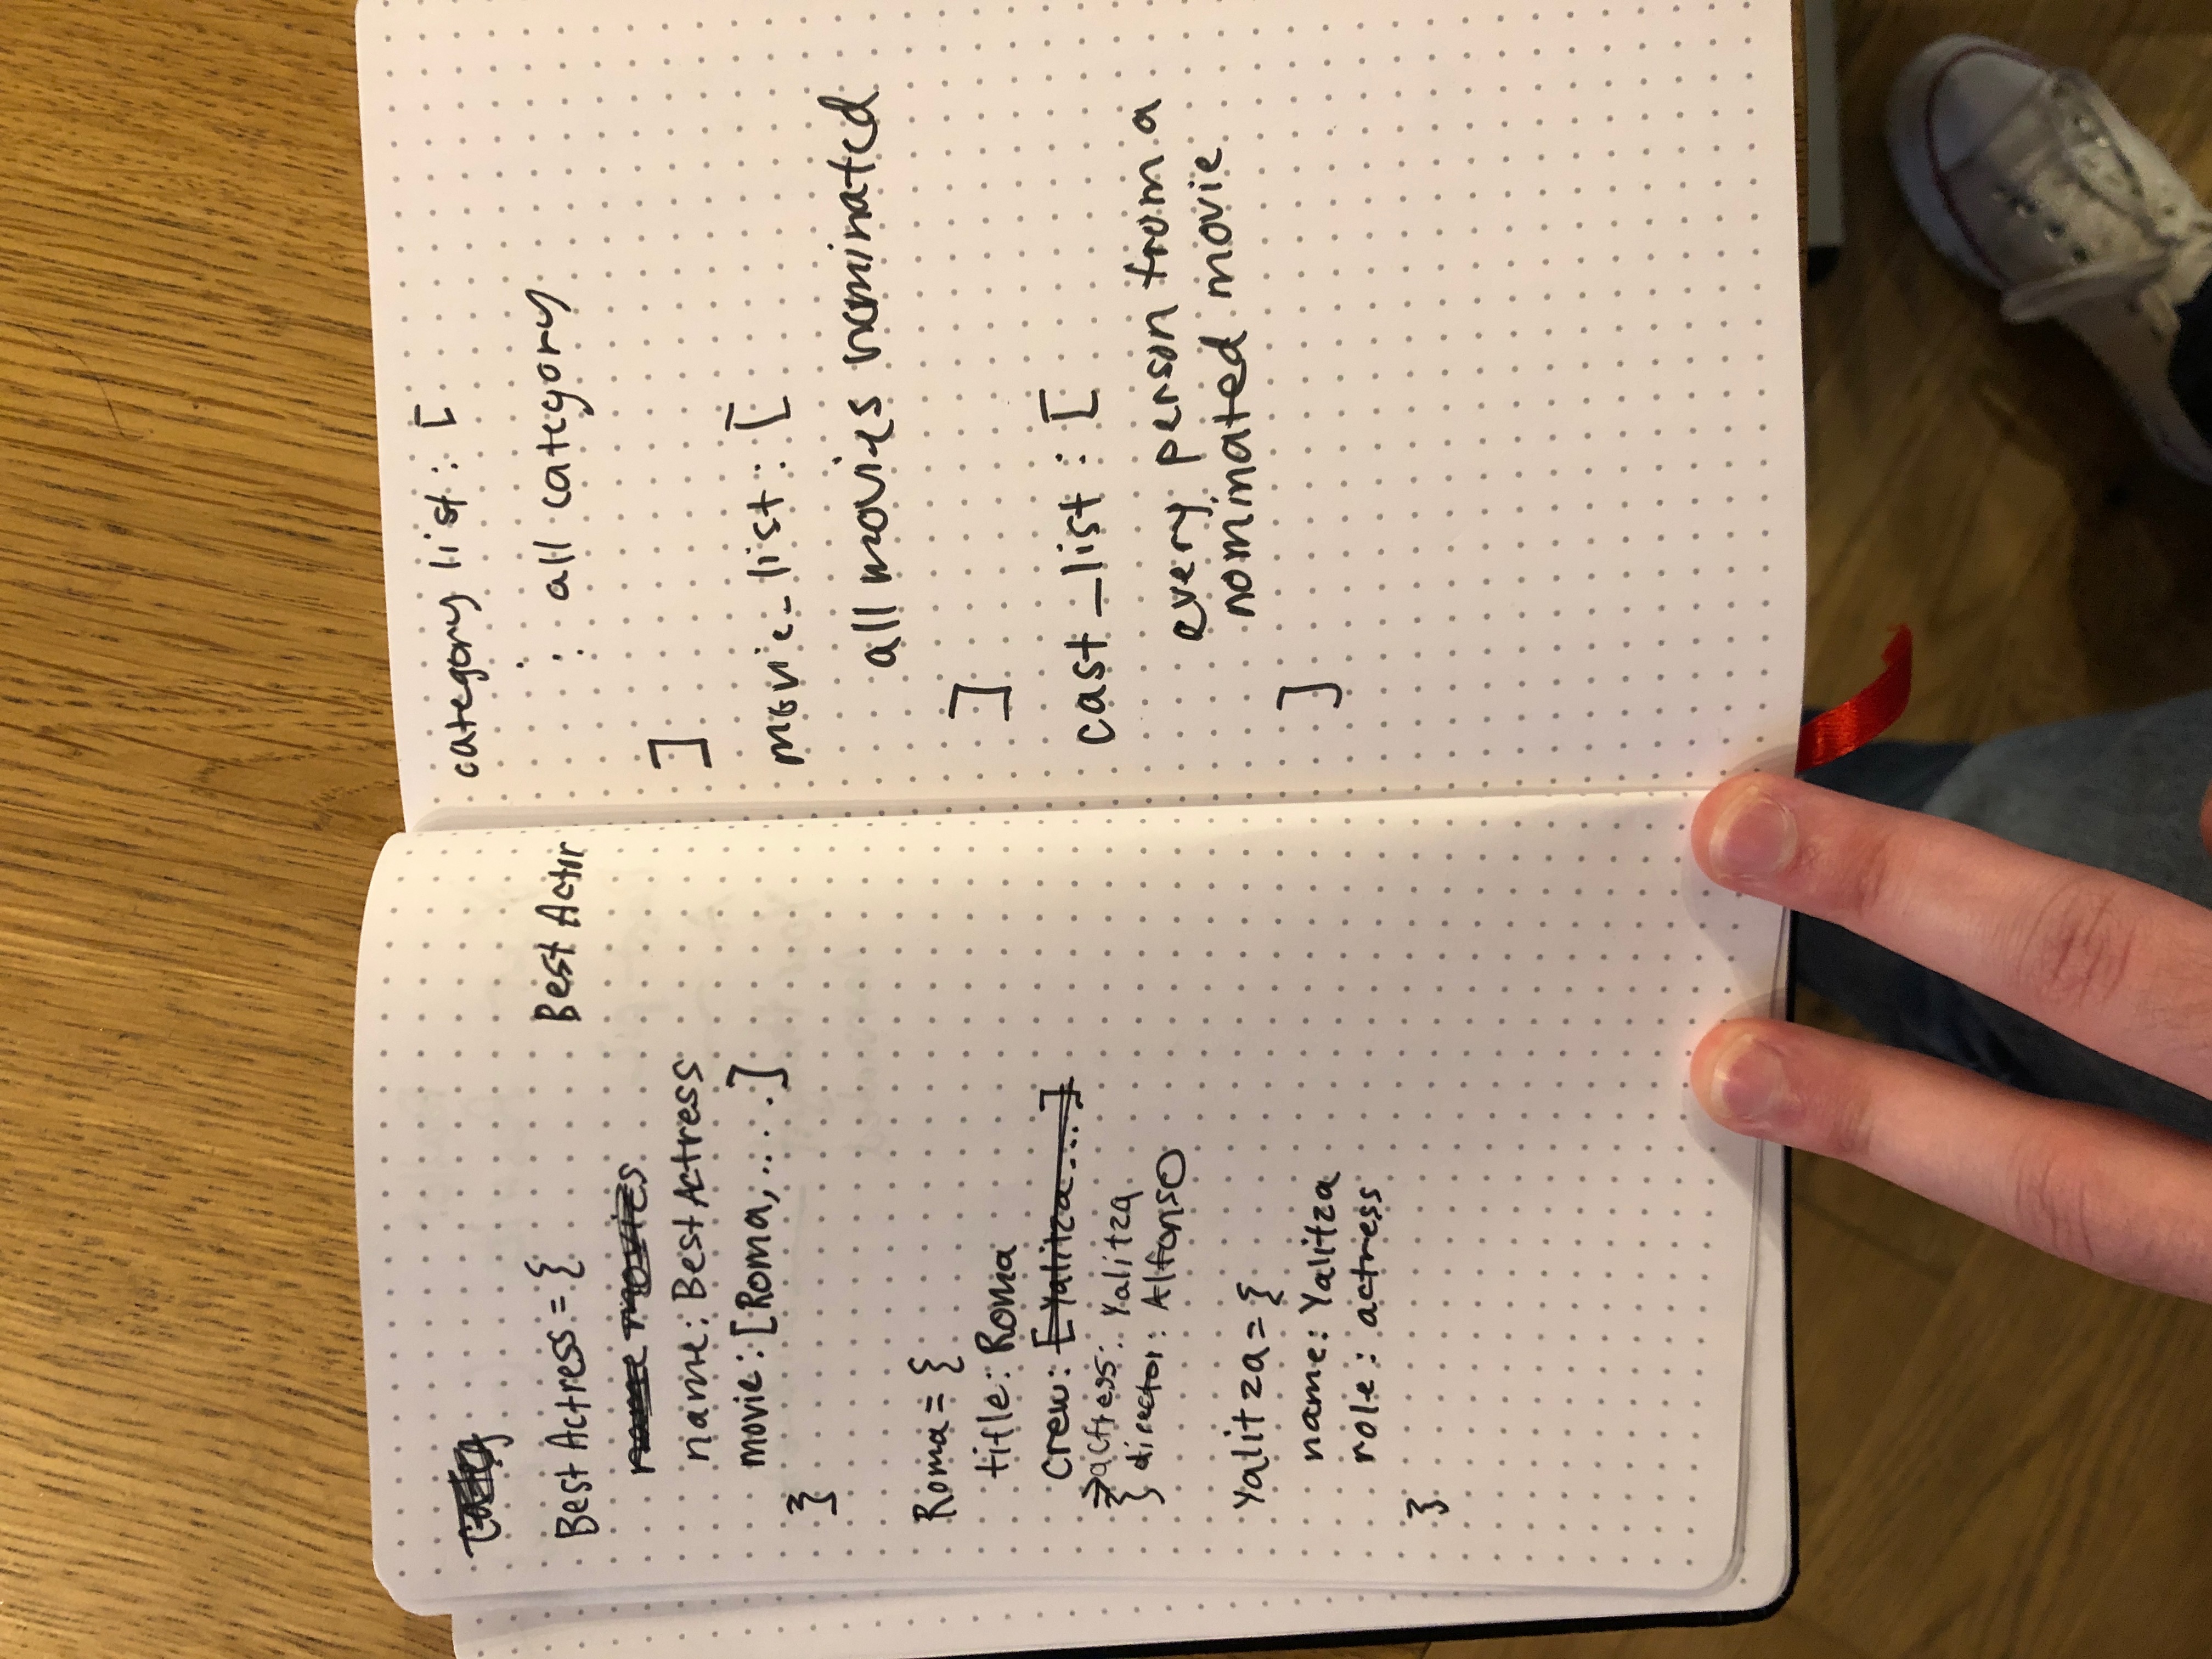 categ
Best Actress = {
Best Actor
name movies
name: Best Actress
movie: [Roma, .....]
}
Roma = {
title: Roma
crew: [Yalitza...]
→ actress: Yalitza
{ director: Alfonso
Yalitza = {
name: Yalitza
role: actress
}
category list: [
: all category
]
movie_list: [
all movies nominated
]
cast_list: [
every person from a
nominated movie
]